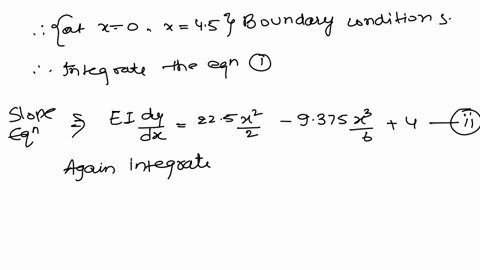 ∴ {at x=0, x=4.5} Boundary conditions.
∴ Integrate the eqn ①
Slope Eqⁿ ⇒ EI dy/dx = 22.5 x²/2 - 9.375 x³/6 + 4 — (ii)
Again integrate